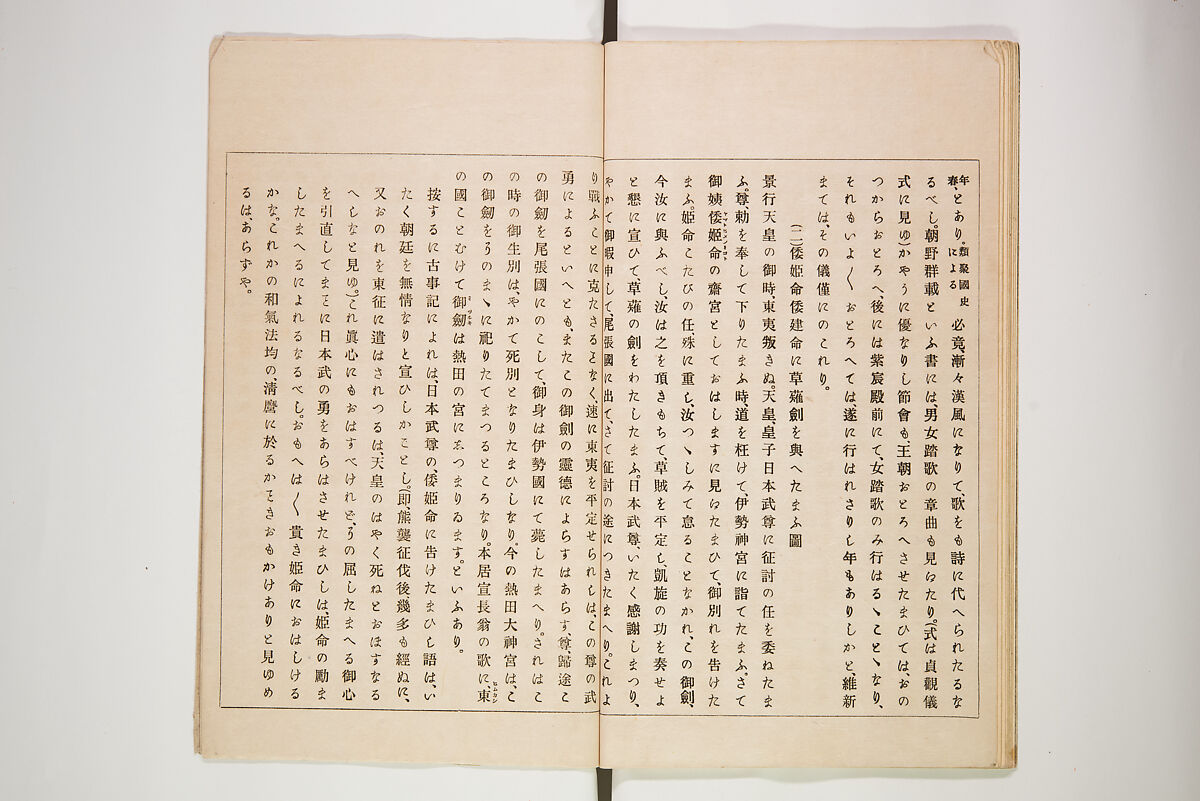 年春、とあり。類聚國史による 必竟、漸々漢風になりて、歌をも詩に代へられたるな
るべし。朝野群載といふ書には、男女踏歌の章曲も見えたり。(式は貞觀儀
式に見ゆ)かやうに優なりし節會も、王朝おとろへさせたまひては、おの
つからおとろへ、後には紫宸殿前にて、女踏歌のみ行はるヽことヽなり、
それもいよ〱おとろへては、遂に行はれさりし年もありしかと、維新
まては、その儀僅にのこれり。
(二)倭姫命倭建命に草薙劍を與へたまふ圖
景行天皇の御時、東夷叛きぬ。天皇、皇子日本武尊に征討の任を委ねたま
ふ。尊、勅を奉して下りたまふ時、道を枉けて、伊勢神宮に詣てたまふ。さて
御姨倭姫命の齋宮としておはしますに見えたまひて、御別れを告けた
まふ。姫命こたびの任、殊に重し、汝つヽしみて怠ることなかれ、この御劍、
今汝に與ふべし、汝は之を頂きもちて、草賊を平定し、凱旋の功を奏せよ
と懇に宣ひて、草薙の劍をわたしたまふ。日本武尊、いたく感謝しまつり、
やかて御暇申して尾張國に出て、さて征討の途につきたまへり。これよ
り戰ふことに克たさることなく、速に東夷を平定せられしはこの尊の武
勇によるといへとも、またこの御劍の靈德によらすはあらす、尊、歸途こ
の御劍を尾張國にのこして、御身は伊勢國にて薨したまへり。されはこ
の時の御生別は、やかて死別となりたまひしなり。今の熱田大神宮は、こ
の御劍をそのまヽに祀りたてまつるところなり。本居宣長翁の歌に東
の國ことむけて御劍は熱田の宮にしつまりゐます。といふあり。
按するに古事記によれは、日本武尊の、倭姫命に告けたまひし語は、い
たく朝廷を無情なりと宣ひしかことし。(即、熊襲征伐後幾多も經ぬに、
又おのれを東征に遣はされつるは、天皇のはやく死ねとおほすなる
へしなと見ゆ。)これ眞心にもおはすべけれど、その屈したまへる御心
を引直してまことに日本武の勇をあらはさせたまひしは、姫命の勵ま
したまへるによれるなるべし。おもへは〱貴き姫命におはしける
かな。これかの和氣法均の、淸麿に於るかことき、おもかけありと見ゆめ
るは、あらすや。